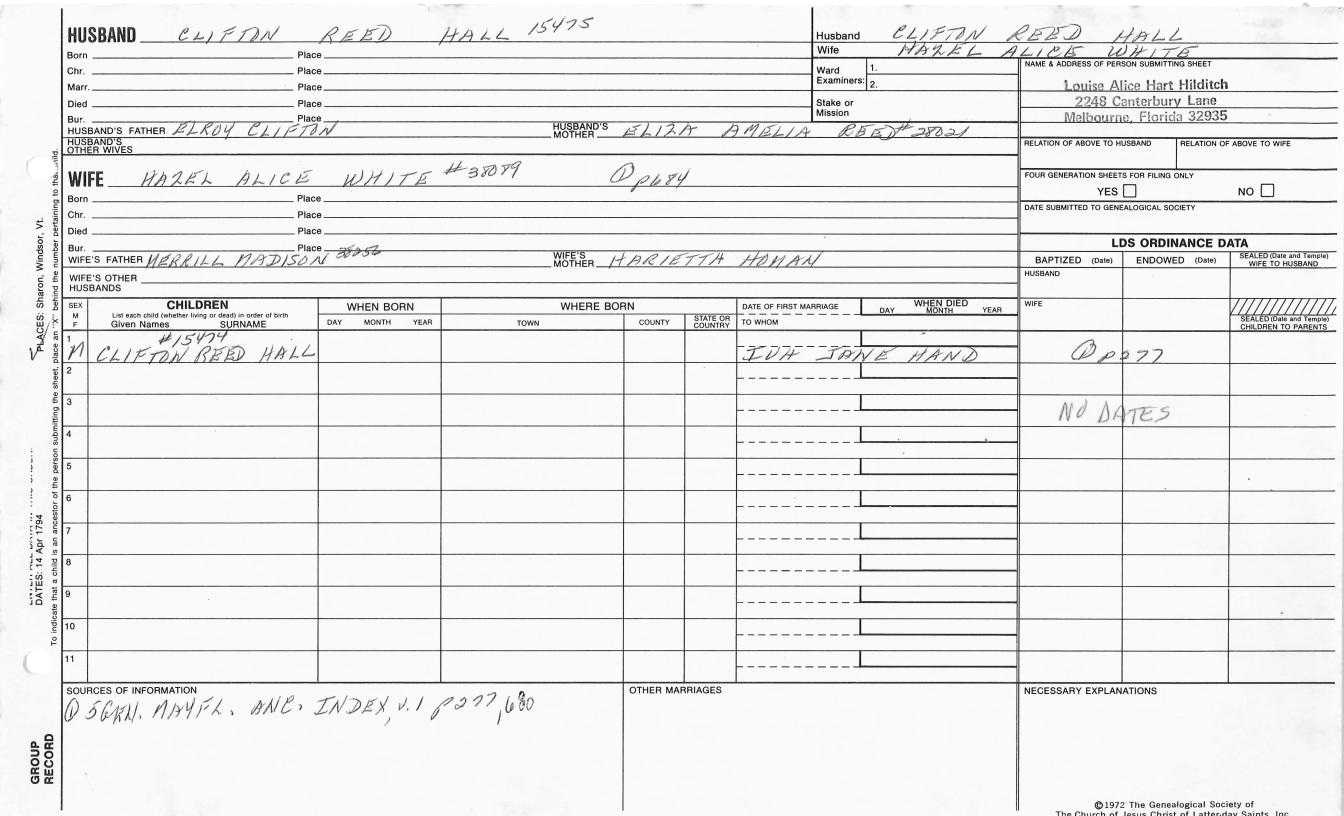 HUSBAND CLIFTON REED HALL 15475
Born Place
Chr. Place
Marr. Place
Died Place
Bur. Place
HUSBAND'S FATHER ELROY CLIFTON HUSBAND'S MOTHER ELIZA AMELIA REED #28021
HUSBAND'S OTHER WIVES
Husband CLIFTON REED HALL
Wife HAZEL ALICE WHITE
Ward Examiners: 1.
2.
Stake or Mission
NAME & ADDRESS OF PERSON SUBMITTING SHEET
Louise Alice Hart Hilditch
2248 Canterbury Lane
Melbourne, Florida 32935
RELATION OF ABOVE TO HUSBAND RELATION OF ABOVE TO WIFE
FOUR GENERATION SHEETS FOR FILING ONLY
YES NO
DATE SUBMITTED TO GENEALOGICAL SOCIETY
WIFE HAZEL ALICE WHITE #38089 ① p684
Born Place
Chr. Place
Died Place
Bur. Place
WIFE'S FATHER MERRILL MADISON WIFE'S MOTHER HARIETTA HOMAN
WIFE'S OTHER HUSBANDS
LDS ORDINANCE DATA
BAPTIZED (Date) ENDOWED (Date) SEALED (Date and Temple) WIFE TO HUSBAND
HUSBAND
WIFE
SEALED (Date and Temple) CHILDREN TO PARENTS
SEX M F
CHILDREN
List each child (whether living or dead) in order of birth
Given Names SURNAME
WHEN BORN
DAY MONTH YEAR
WHERE BORN
TOWN COUNTY STATE OR COUNTRY
DATE OF FIRST MARRIAGE
TO WHOM
WHEN DIED
DAY MONTH YEAR
#15474
1 M CLIFTON REED HALL IVA JANE HAND ① p277
2
3 NO DATES
4
5
6
7
8
9
10
11
SOURCES OF INFORMATION
① 5GEN. MAYFL. ANC. INDEX, V.1 p277, 680
OTHER MARRIAGES
NECESSARY EXPLANATIONS
©1972 The Genealogical Society of
The Church of Jesus Christ of Latter-day Saints, Inc.
PLACES: Sharon, Windsor, Vt.
DATES: 14 Apr 1794
To indicate that a child is an ancestor of the person submitting the sheet, place an "X" behind the number pertaining to that child.
GROUP RECORD